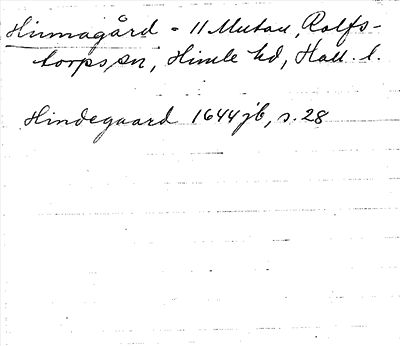 Hinnagård = 11 Mutau, Rolfs-
torps sn, Himle hd, Hall. l.
Hindegaard 1644 jb, s. 28